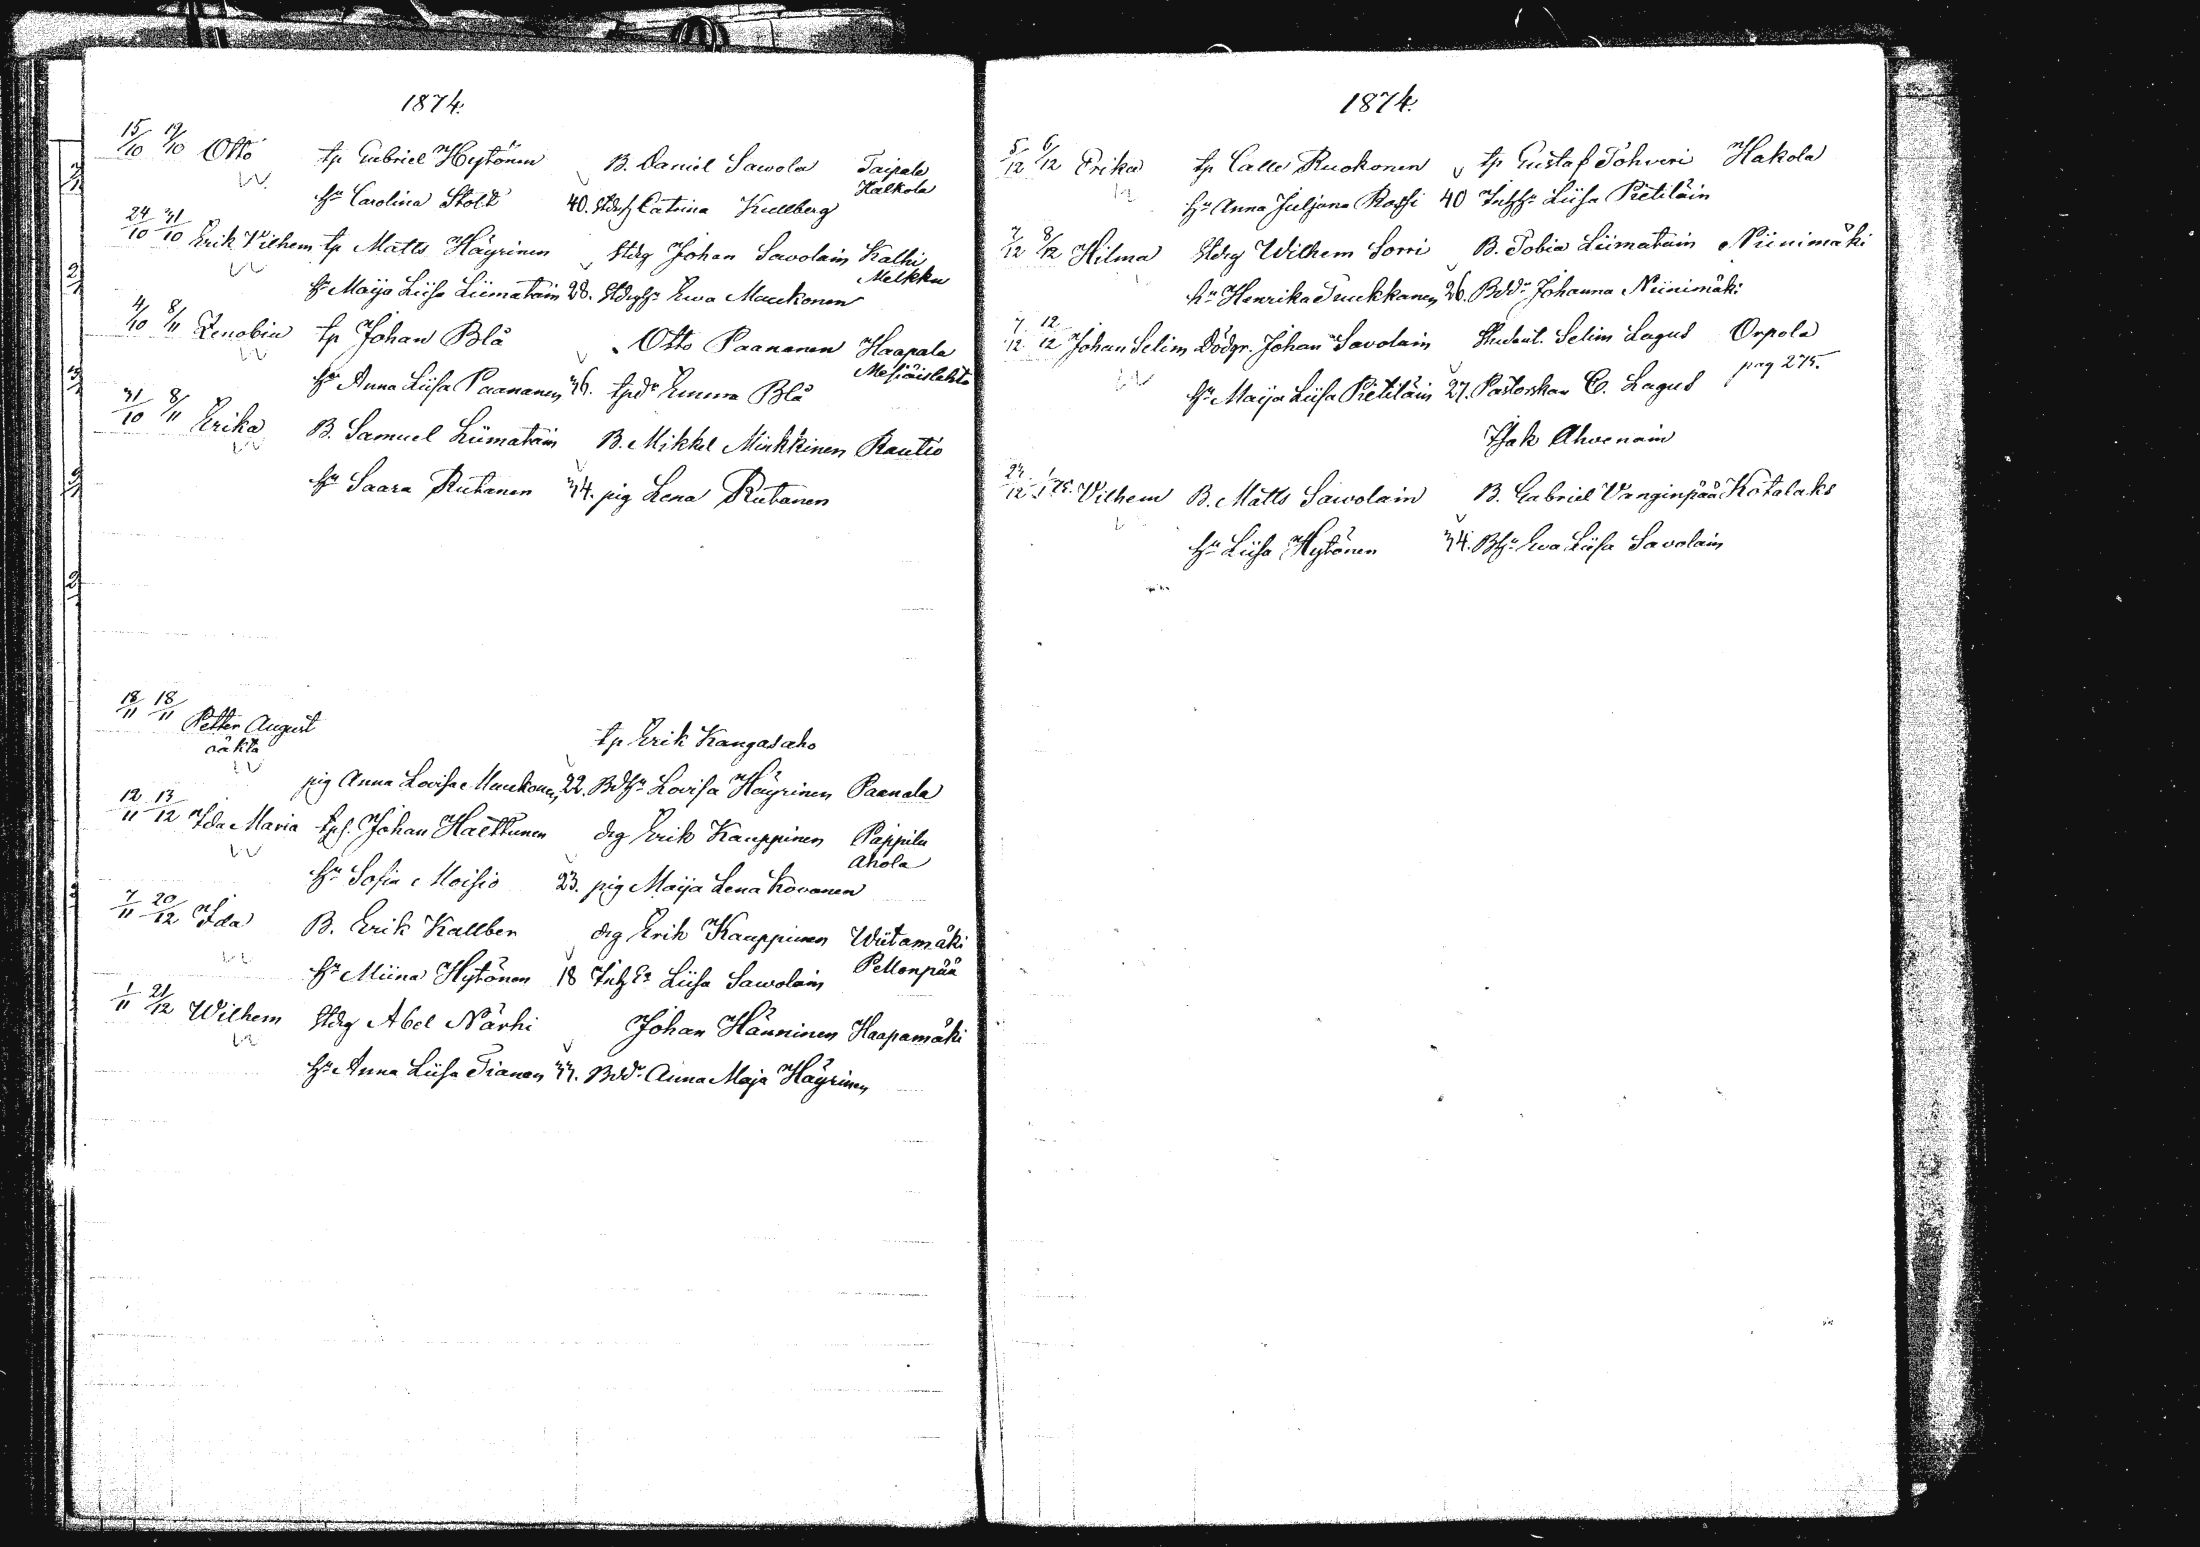 1874.
15/10 19/10 Otto tp Gabriel Hytönen B. Daniel Sawola Taipale
Hu Carolina Stolt 40. Catrina Kullberg Halkola
24/10 31/10 Erik Vilhem tp Matts Häyrinen Stdrg Johan Sawolain Kalhi
Hu Maija Liisa Liimatain 28. Stdrghu Ewa Muukonen Melkku
4/10 8/11 Zenobia tp Johan Blå Otto Paananen Haapala
Hu Anna Liisa Paananen 36. tpdr Emma Blå Mesiäislehto
31/10 8/11 Erika B. Samuel Liimatain B. Mikkel Minkkinen Rautio
Hu Saara Rutanen 34. pig Lena Rutanen
18/11 18/11 Petter August tp Erik Kangasaho
oäkta
pig Anna Lovisa Muukonen 22. Bdhu Lovisa Häyrinen Paanala
12/11 13/12 Ida Maria tps. Johan Halttunen drg Erik Kauppinen Pappila
Hu Sofia Moisio 23. pig Maija Lena Kovanen Ahola
7/11 20/12 Ida B. Erik Kallber drg Erik Kauppinen Wiitamäki
Hu Miina Hytönen 18 Liisa Sawolain Pellonpää
1/11 21/12 Wilhem Stdrg Abel Närhi Johan Hänninen Haapamäki
Hu Anna Liisa Tianen 33. Bddr Anna Maja Häyrinen
1874.
5/12 6/12 Erika tp Calle Ruokonen tp Gustaf Pohveri Hakola
Hu Anna Juljana Rossi 40 Inhhu Liisa Pietiläin
7/12 8/12 Hilma Stdrg Wilhem Sorri B. Tobia Liimatain Niinimäki
Hu Henrika Truukkanen 26. Bddr Johanna Niinimäki
7/12 12/12 Johan Selim Dödgr. Johan Savolain Student. Selim Lagus Orpola
Hu Maija Liisa Pietiläin 27. Pastorskan C. Lagus pag 275.
Isak Ahvenain
27/12 1/1 75. Vilhem B. Matts Sawolain B. Gabriel Vanginpää Kotalaks
Hu Liisa Hytönen 34. Bhu Ewa Liisa Savolain